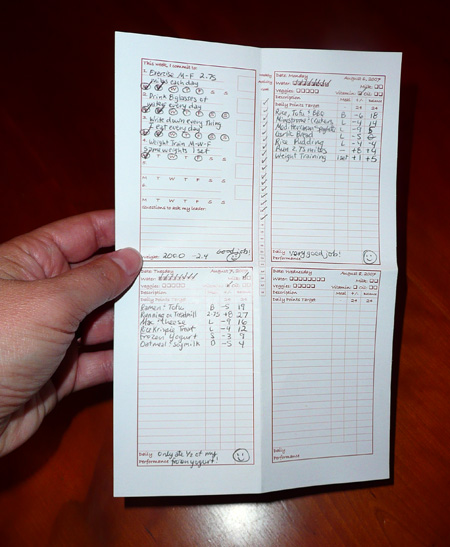 This week, I commit to:
1. Exercise M-F 2.75
miles each day
M T W T F S S
2. Drink 8 glasses of
water every day
M T W T F S S
3. Write down every thing
I eat every day
M T W T F S S
4. Weight Train M-W-F
1 set
M T W T F S S
5.
M T W T F S S
6.
M T W T F S S
Questions to ask my leader:
Weight: 200.0 -2.4 Good job!
Date: Monday August 6, 2007
Water: Milk:
Veggies: Vitamin: Oil:
Description Meal
Daily Points Target 24
Rice, Tofu & BBQ B -6 18
Minestrone/Crackers L -4 14
L
Garlic Bread L -5
Rice Pudding L -4
Run 2.75 miles +8
Weight Training 1 set +1 +5
Daily
Performance: Very good job!
Date: Tuesday August 7, 2007
Water: Milk:
Veggies: Vitamin: Oil:
Description Meal
Daily Points Target 24 24
Ramen & Tofu B -5 19
Running on Treadmill 2.75 +8 27
Mac & Cheese L
Rice Krispie Treat L -4 12
Frozen Yogurt S -3 9
Oatmeal & Soymilk D -5 4
Daily
Performance: Only ate 1/2 of my
frozen yogurt!
Date: Wednesday August 8, 2007
Water: Milk:
Veggies: Vitamin: Oil:
Description Meal
Daily Points Target 24 24
Daily
Performance: